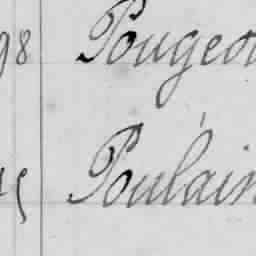 98 Pougeo
45 Poulain